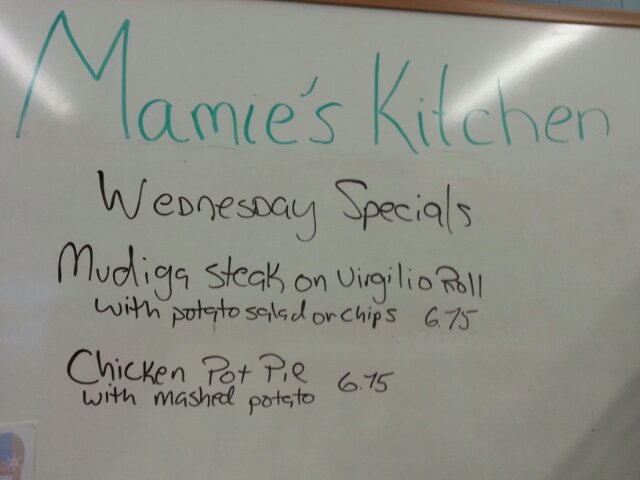 Mamie's Kitchen
Wednesday Specials
Mudiga steak on Virgilio Roll
with potato salad or chips 6.75
Chicken Pot Pie 6.75
with mashed potato